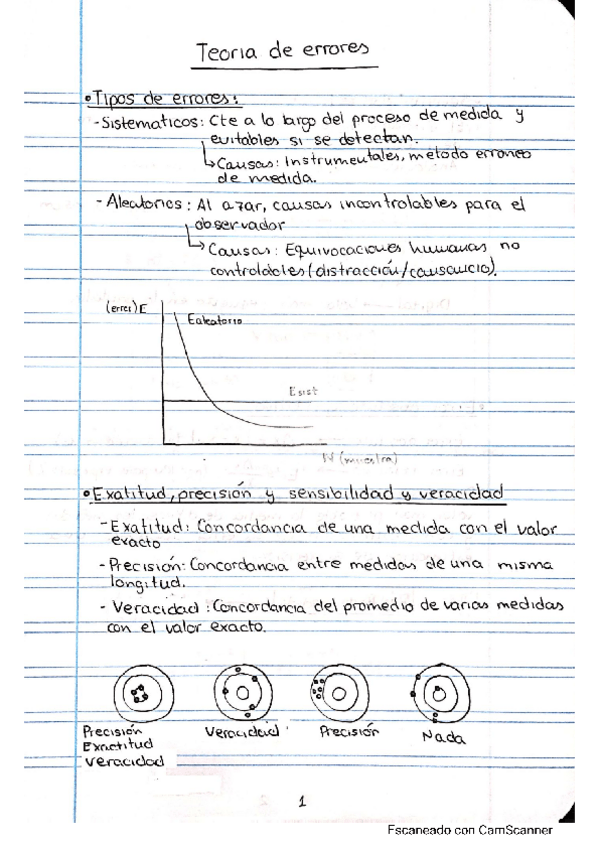 Teoria de errores
• Tipos de errores:
- Sistematicos: Cte a lo largo del proceso de medida y
evitables si se detectan.
↳ Causas: Instrumentales, método erroneo
de medida.
- Aleatorios: Al azar, causas incontrolables para el
observador
↳ Causas: Equivocaciones humanas no
controlables (distracción/cansancio).
(error) E
Ealeatorio
Esist
N (muestra)
• Exatitud, precisión y sensibilidad y veracidad
- Exatitud: Concordancia de una medida con el valor
exacto
- Precisión: Concordancia entre medidas de una misma
longitud.
- Veracidad: Concordancia del promedio de varias medidas
con el valor exacto.
Precisión
Exactitud
veracidad
Veracidad
Precisión
Nada
1
Escaneado con CamScanner